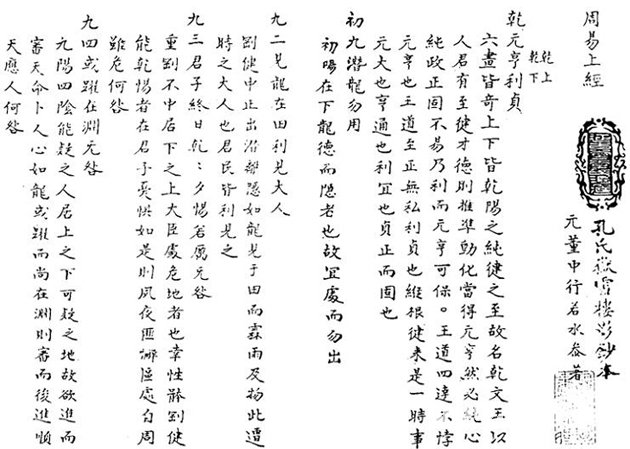 周易上經
孔氏嶽雪樓影鈔本
元董中行若水叅著
乾上
乾下
乾元亨利貞
六畫皆竒上下皆乾陽之純徤之至故名乾文王以
人君有至徤才德則推準動化當得元亨然必純心
純政正固不易乃利而元亨可保。王道四達不悖
元亨也王道至正無私利貞也縱根徤来是一時事
元大也亨通也利宜也貞正而固也
初九潛龍勿用
初陽在下龍德而隱者也故宜處而勿出
九二見龍在田利見大人
劉健中正出沿離隠如龍見于田而霖雨及物此遭
時之大人也君民皆利見之
九三君子終日乾〻夕惕若厲无咎
重劉不中居下之上大臣處危地者也幸性體劉健
能乾惕者在君子憂惧如是則夙夜匪懈區處自周
雖危何咎
九四或躍在淵无咎
九陽四陰能疑之人居上之下可疑之地故欲進而
審天命卜人心如龍或躍而尚在淵則審而後進順
天應人何咎